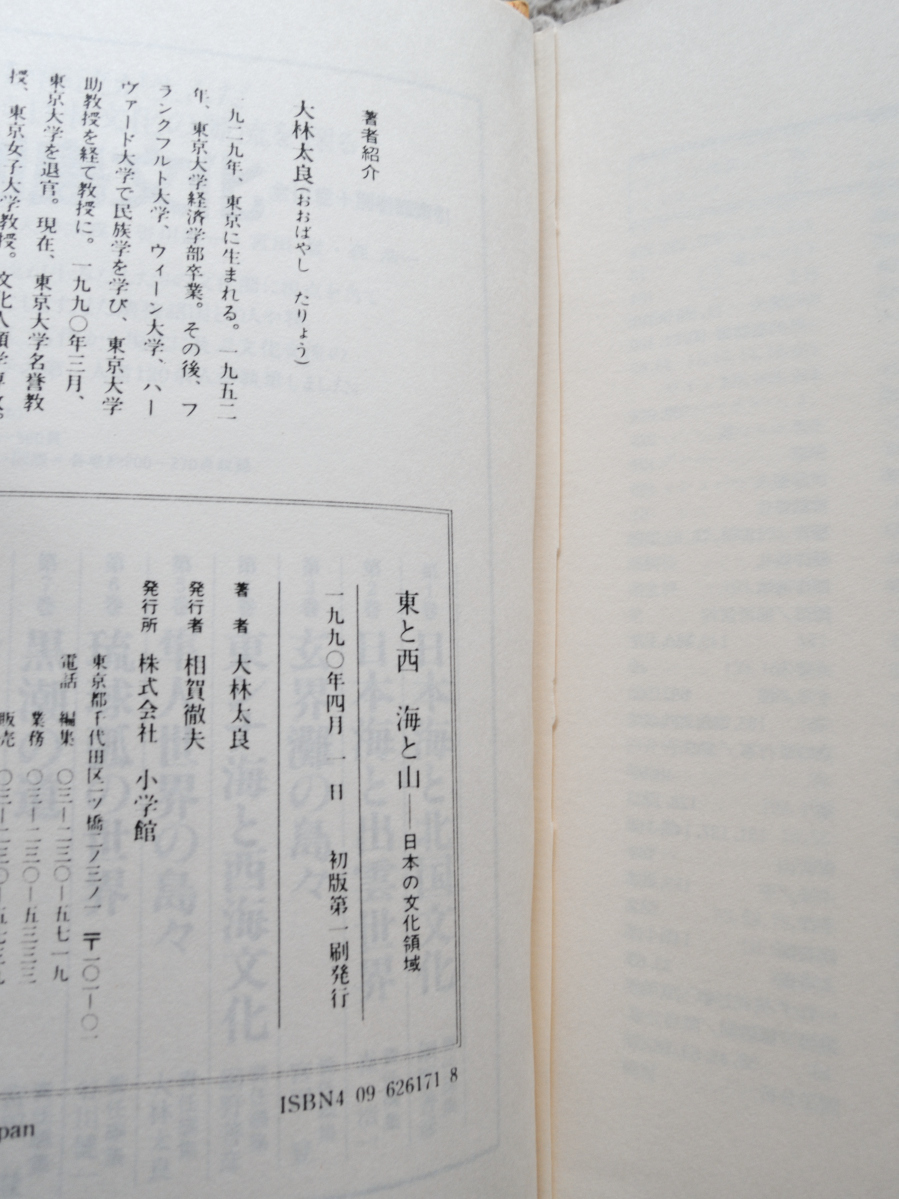 著者紹介
大林太良(おおばやし たりょう)
一九二九年、東京に生まれる。一九五二
年、東京大学経済学部卒業。その後、フ
ランクフルト大学、ウィーン大学、ハー
ヴァード大学で民族学を学び、東京大学
助教授を経て教授に。一九九〇年三月、
東京大学を退官。現在、東京大学名誉教
授、東京女子大学教授。文化人類学専攻。
東と西 海と山──日本の文化領域
一九九〇年四月一日 初版第一刷発行
著者 大林太良
発行者 相賀徹夫
発行所 株式会社 小学館
東京都千代田区一ツ橋二ノ三ノ一 〒一〇一-〇一
電話 編集 〇三-二三〇-五七一九
業務 〇三-二三〇-五三三三
販売 〇三-二三〇-五七三九
ISBN4 09 626171 8